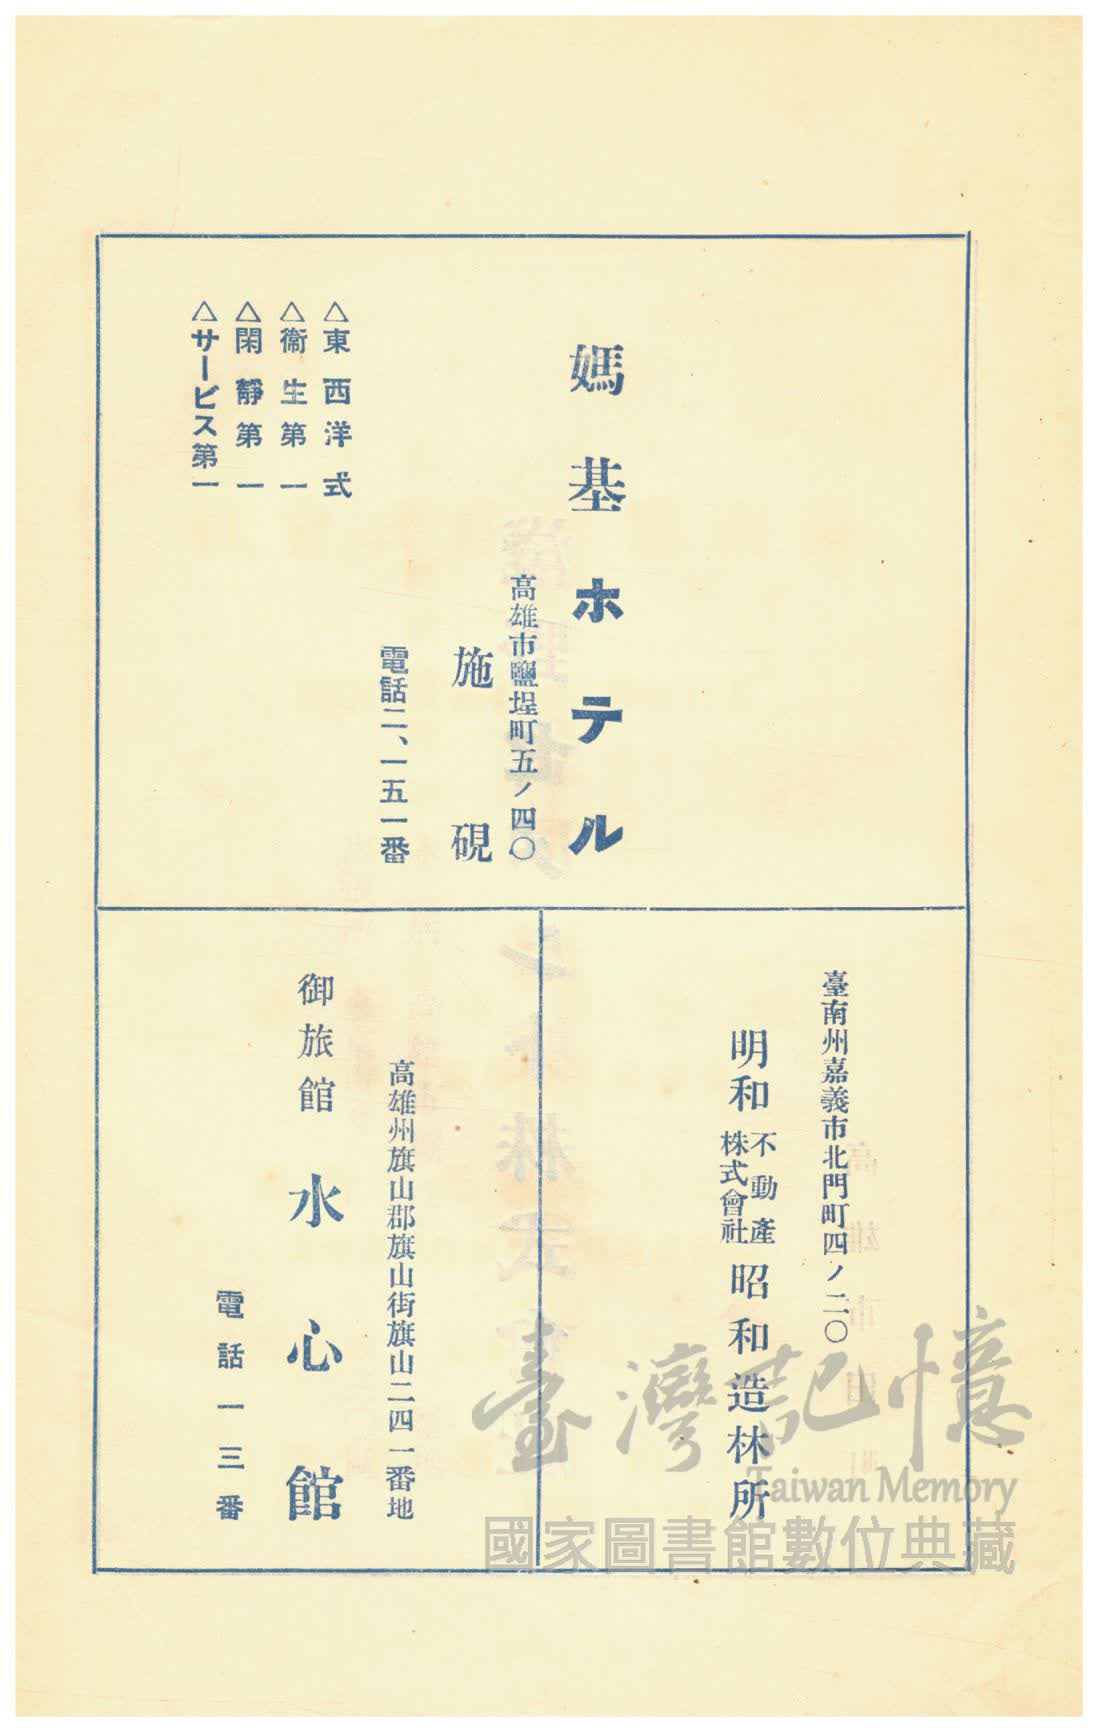 媽基ホテル
高雄市鹽埕町五ノ四〇
施硯
電話二、一五一番
△東西洋式
△衞生第一
△閑靜第一
△サービス第一
臺南州嘉義市北門町四ノ二〇
明和不動產株式會社昭和造林所
高雄州旗山郡旗山街旗山二四一番地
御旅館 水心館
電話一三番
臺灣記憶
Taiwan Memory
國家圖書館數位典藏